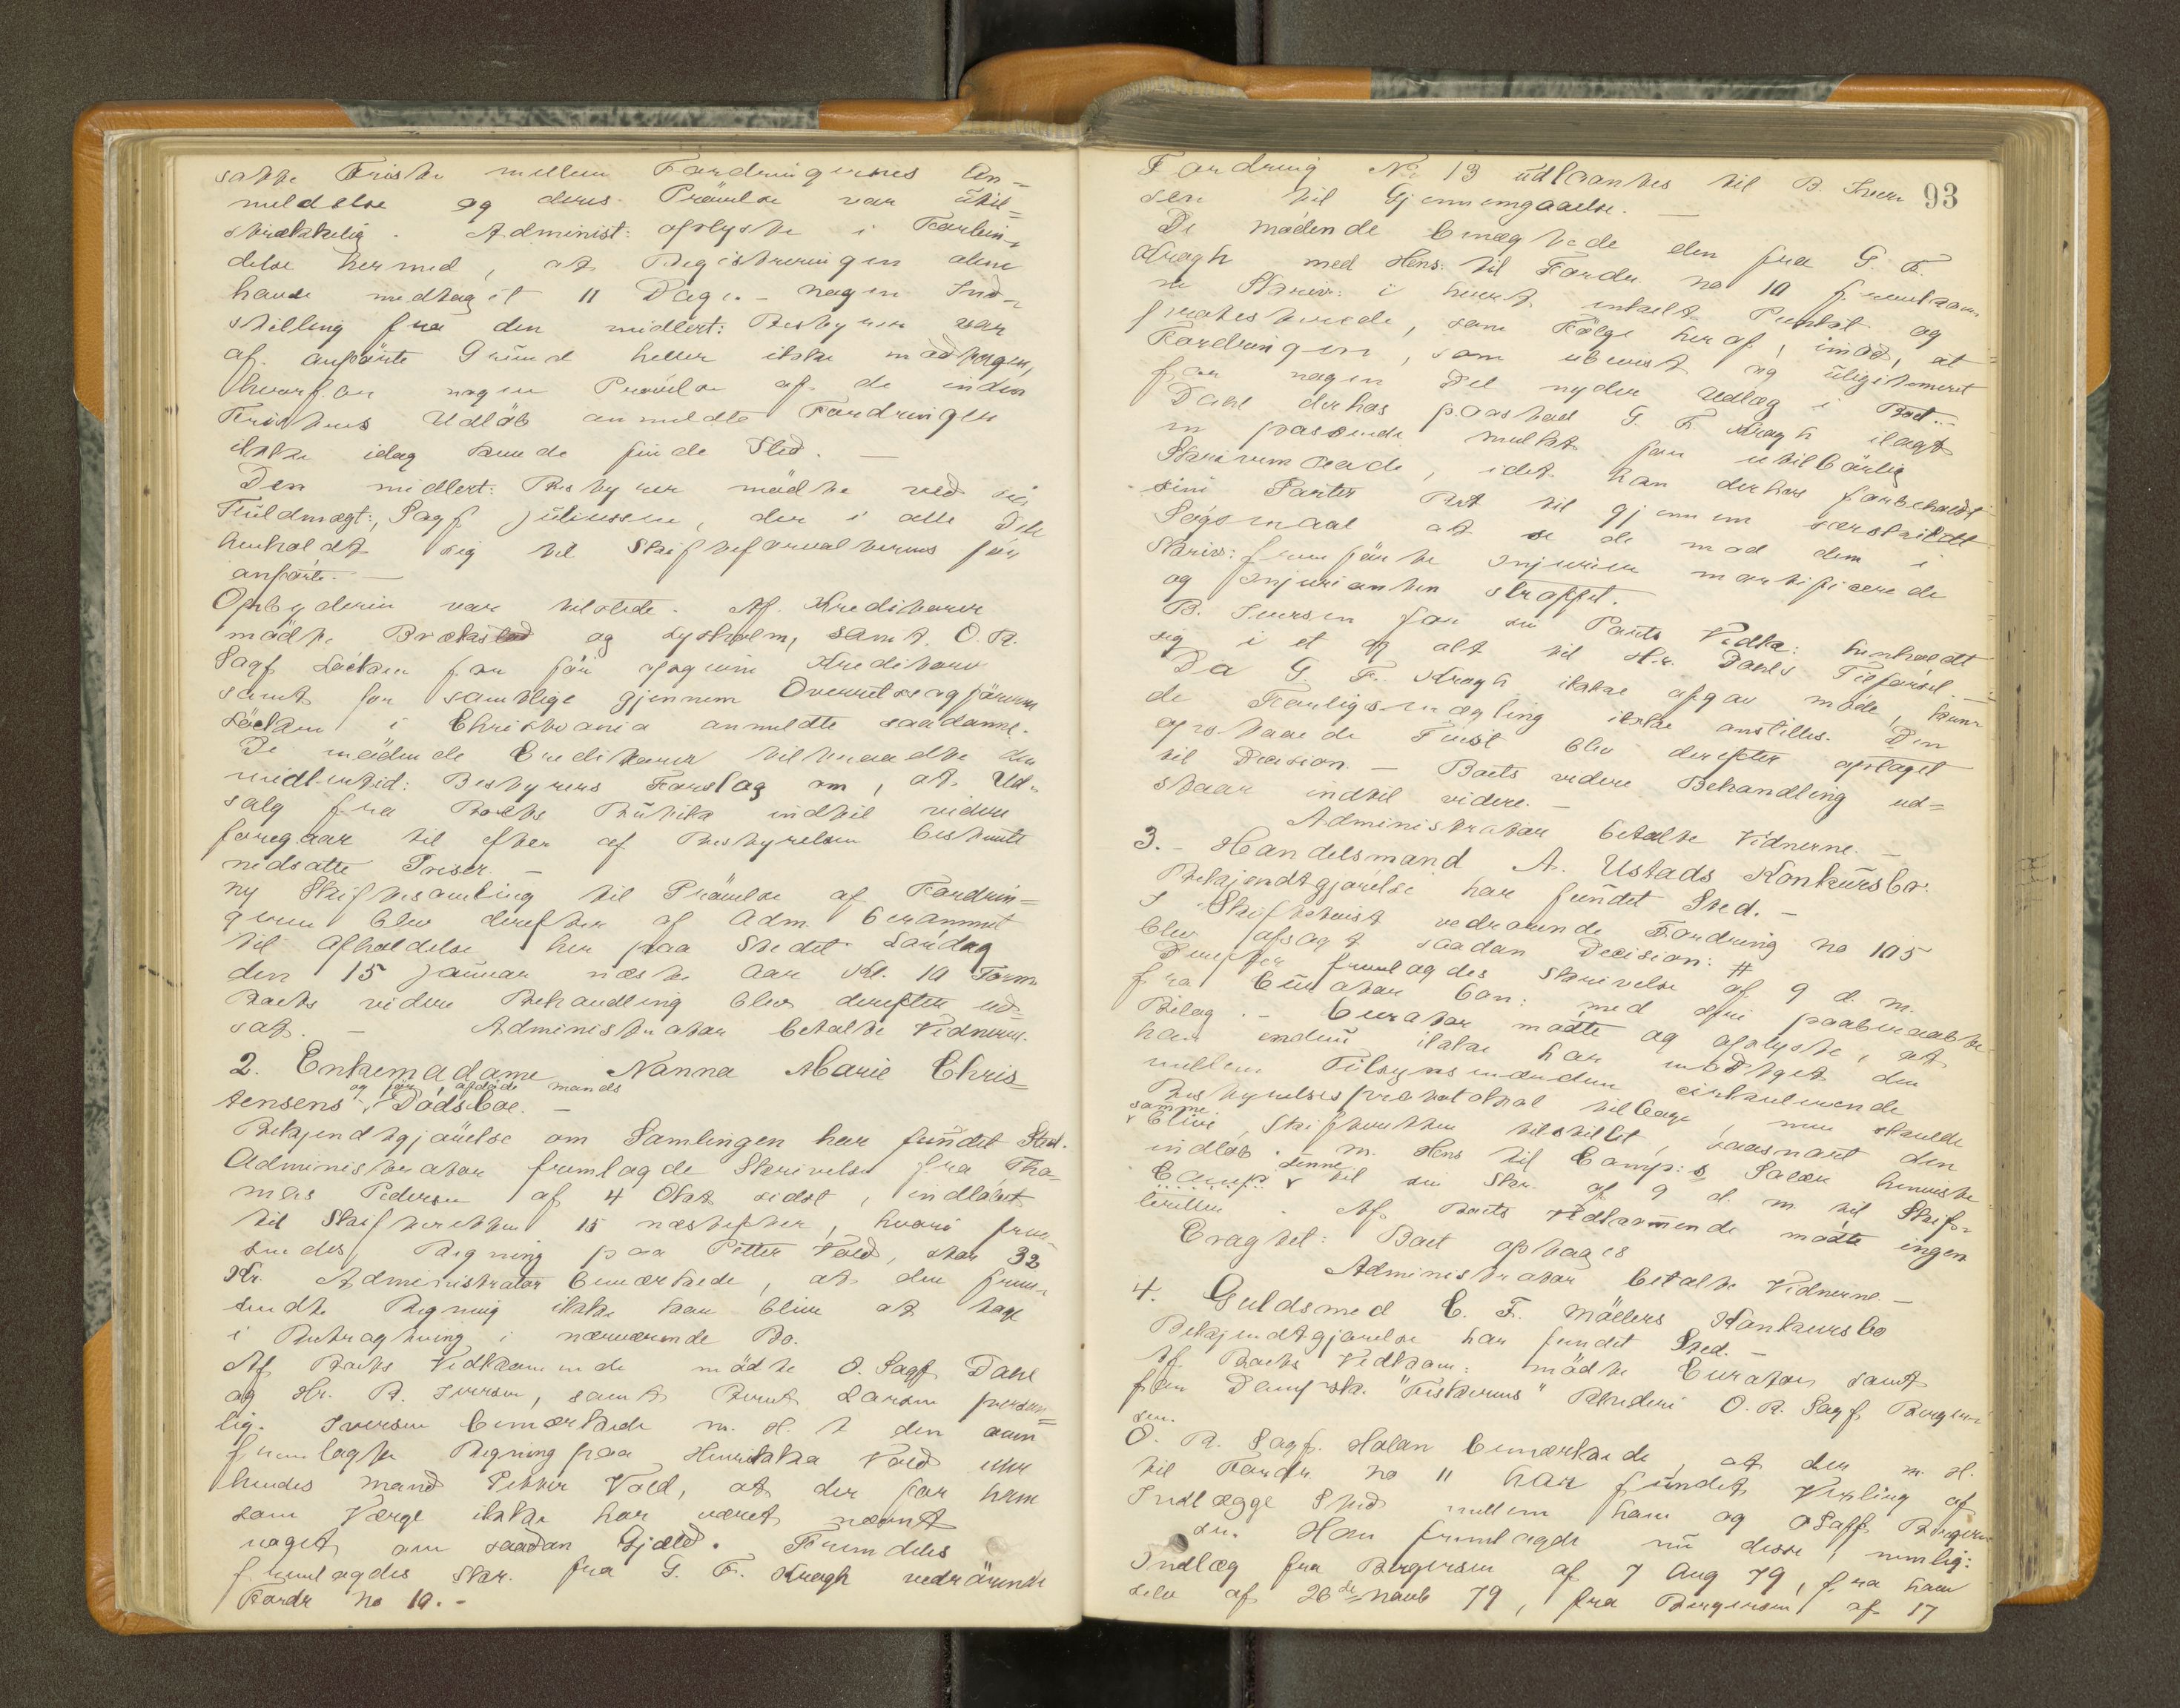 satte Friste mellem Fordringernes An=
meldelse og deres Prövelse var util=
strækkelig. Administ: oplyste i Forbin-
delse hermed, at Registreringen alene
havde medtaget 11 Dage. - Nogen Ind-
stilling fra den midlert: Bestyrer var
af anförte Grund heller ikke modtagen,
hvorfor nogen Prövelse af de inden
Fristens Udlöb anmeldte Fordringer
ikke idag kunde finde Sted. -
Den midlert: Bestyrer mödte ved sin
Fuldmægt:, Sagf Juliussen, der i alle Dele
henholdt sig til Skifteforvalterens för
anförte. -
Opbyderen var tilstede. Af Kreditorer
mödte Brækstad og Lysholm, samt O. R.
Sagf Löcken for för opgivne Kreditorer
samt for samtlige gjennem Overretssagförerne
Löcken i Christiania anmeldte saadanne.
De mödende Creditorer tiltraadte den
midlertid: Bestyrers Forslag om, at Ud-
salg fra Boets Butik indtil videre
foregaar til efter af Bestyrelsen bestemte
nedsatte Priser. -
ny Skiftesamling til Prövelse af Fordrin=
gerne blev derefter af Adm. berammet
til Afholdelse her paa Stedet Lördag
den 15 Januar næste Aar Kl. 10 Form
Boets videre Behandling blev derefter ud=
sat. - Administrator betalte Vidnerne.
2. Enkemadame Nanna Marie Chris=
og för afdöde mands
tensens Dödsboe. -
Bekjendtgjörelse om Samlingen har fundet Sted.
Administrator fremlagde Skrivelse fra Tho-
mas Pedersen af 4 Okt sidst, indlöbet
til Skifteretten 15 næstefter, hvori frem-
sendes Regning paa Petter Vold, stor 32
Kr. Administrator bemærkede, at den frem-
sendte Regning ikke kan blive at tage
i Betragtning i nærværende Bo.
Af Boets Vedkommende mödte O. Sagf Dahl
og Hr. B. Iversen, samt Bernt Larsen person=
lig. Iversen bemærkede m. H. t den
fremlagte Regning paa Henrikka Vold eller
hendes mand Petter Vold, at der for ham
som Værge ikke har været nævnt
noget om saadan Gjæld. Fremdeles
fremlagdes Skr. fra G. F. Kragh vedrörende
Fordr No 10. -
93
Fordring No 13 udlaantes til B. Iver
sen til Gjennemgaaelse. -
De mödende benægtede den fra G. F.
Kragh med Hens: til Fordr. no 10 fremkom
ne Skriv: i hvert enkelt Punkt og
protesterede, som Fölge heraf, imod, at
Fordringen, som ubevist og ulegitimeret
for nogen Del nyder Udlæg i Boet. -
Dahl derhos paastod G. F. Kragh ilagt
en passende mulkt for utilbörlig
Skrivemaade, idet han derhos forbeholdt
sine Parter Ret til gjennem særskildt
Sögsmaal at se de mod dem i
Skriv: fremförte Injurier mortificerede
og Injurianten straffet.
B. Iversen for sin Parts Vedk: henholdt
sig i et og alt til Hr. Dahls Tilförsel. -
Da G. F. Kragh ikke afgav möde, kun-
de Forligsmægling ikke anstilles. Den
opstaaede Tvist blev derefter optaget
til Decision. - Boets videre Behandling ud=
staar indtil videre. -
Administrator betalte Vidnerne. -
3. - Handelsmand A. Ustads Konkursbo.
Bekjendtgjörelse har fundet Sted. -
I Skiftetvist vedrörende Fordring no 105
blev afsagt saadan Decision: #
Derefter fremlagdes Skrivelse af 9 d. m.
fra Curator bon: med dens paaberaabte
Bilag. - Curator mödte og oplyste, at
han endnu ikke har modtaget den
mellem Tilsynsmændene cirkulerende
Bestyrelsesprotokol tilbage, men skulde
samme
blive Skifteretten tilstillet, saasnart den
indlöb. M. Hens til Comp: s Salær henviste
denne
Comp. til sin Skr. af 9 d. m. til Skif-
teretten. Af Boets Vedkommende mödte ingen
Eragtet: Boet optages
Administrator betalte Vidnerne. -
4. Guldsmed C. F. Möllers Konkursbo
Bekjendtgjörelse har fundet Sted. -
Af Boets Vedkom: mödte Curator samt
for Dampsk. "Fiskerens" Rhederi O. R. Sagf Berger-
sen.
O. R. Sagf. Holan bemærkede, at der m. H.
til Fordr no 11 har fundet Vexling af
Indlægge Sted mellem ham og OSagf. Berger
sen. Han fremlagde nu disse, nemlig:
Indlæg fra Bergersen af 7 Aug 79, fra ham
selv af 26de Novb 79, fra Bergersen af 17